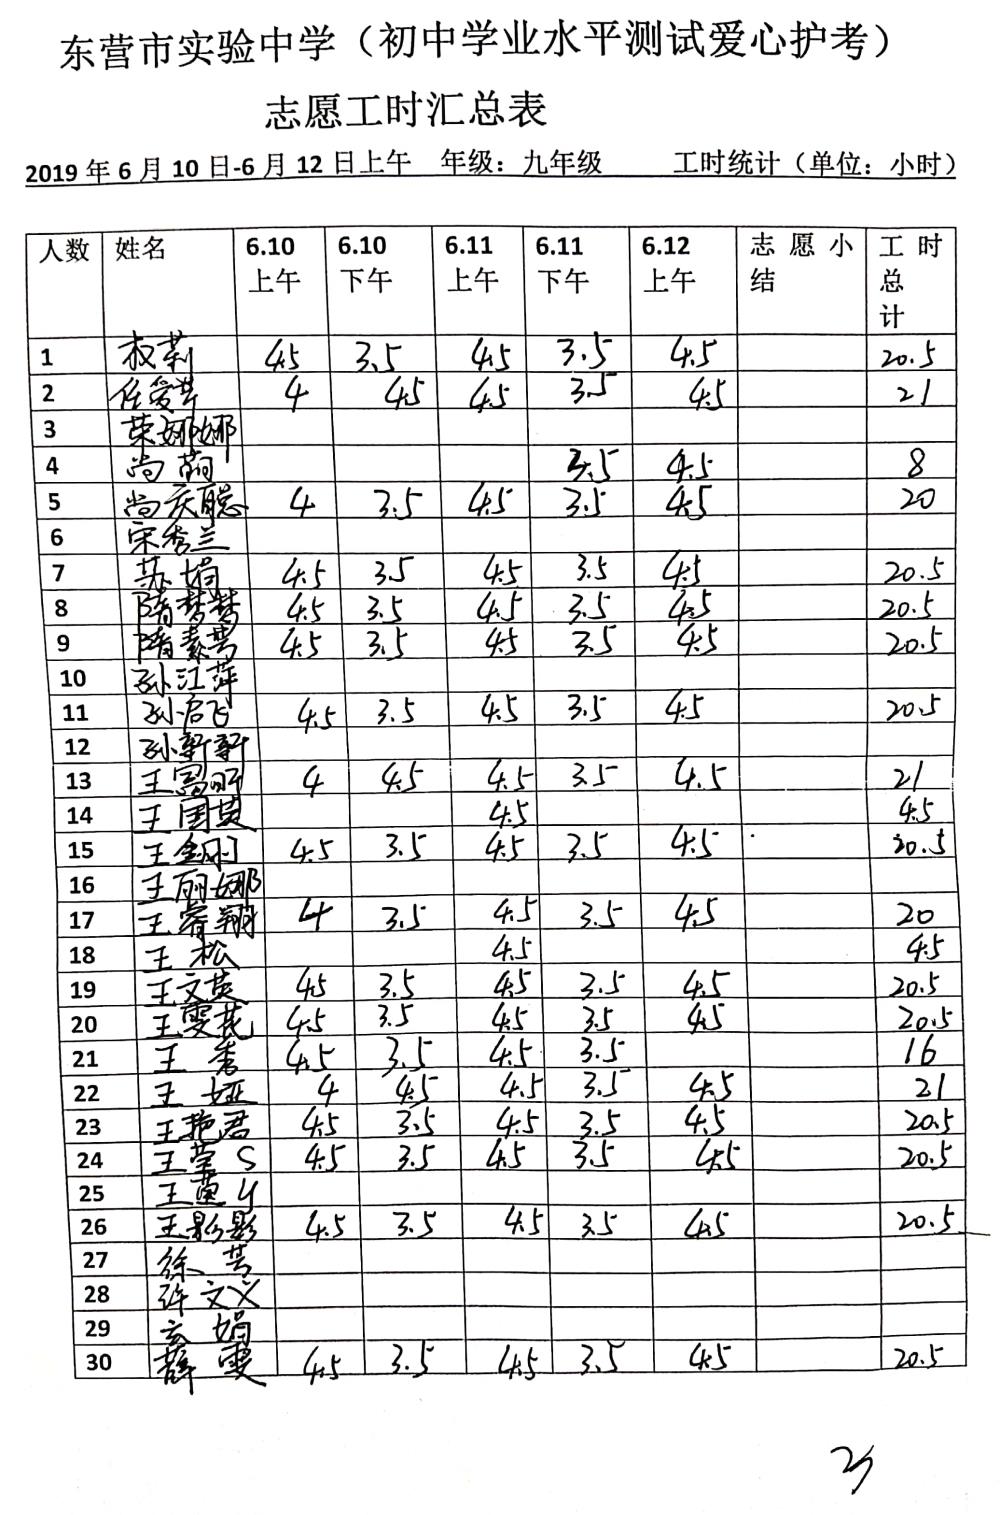 东营市实验中学（初中学业水平测试爱心护考）
志愿工时汇总表
2019 年 6 月 10 日-6 月 12 日上午 年级：九年级 工时统计（单位：小时）
人数 姓名 6.10 上午 6.10 下午 6.11 上午 6.11 下午 6.12 上午 志愿小结 工时总计
1 权莉 4.5 3.5 4.5 3.5 4.5 20.5
2 任爱芹 4 4.5 4.5 3.5 4.5 21
3 荣娜娜
4 尚萌 3.5 4.5 8
5 尚庆聪 4 3.5 4.5 3.5 4.5 20
6 宋秀兰
7 苏娟 4.5 3.5 4.5 3.5 4.5 20.5
8 隋梦梦 4.5 3.5 4.5 3.5 4.5 20.5
9 隋素芳 4.5 3.5 4.5 3.5 4.5 20.5
10 孙江萍
11 孙启飞 4.5 3.5 4.5 3.5 4.5 20.5
12 孙新新
13 王富丽 4 4.5 4.5 3.5 4.5 21
14 王国英 4.5 4.5
15 王 4.5 3.5 4.5 3.5 4.5 20.5
16 王丽娜
17 王睿翔 4 3.5 4.5 3.5 4.5 20
18 王松 4.5 4.5
19 王文英 4.5 3.5 4.5 3.5 4.5 20.5
20 王雯 4.5 3.5 4.5 3.5 4.5 20.5
21 王秀 4.5 3.5 4.5 3.5 16
22 王娅 4 4.5 4.5 3.5 4.5 21
23 王艳君 4.5 3.5 4.5 3.5 4.5 20.5
24 王莹S 4.5 3.5 4.5 3.5 4.5 20.5
25 王 y
26 王影影 4.5 3.5 4.5 3.5 4.5 20.5
27 徐芳
28 许文义
29 玄娟
30 薛雯 4.5 3.5 4.5 3.5 4.5 20.5